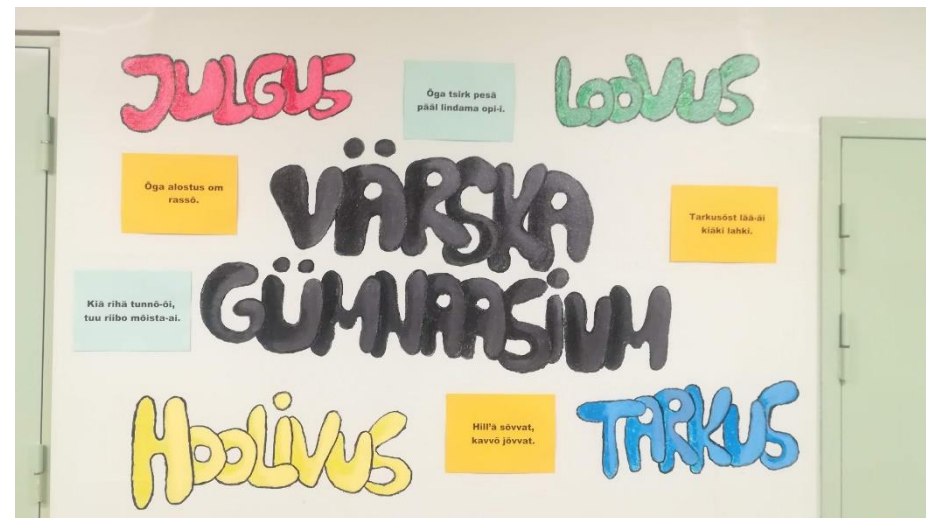 JULGUS
Õga tsirk pesä
pääl lindama opi-i.
LOOVUS
Õga alostus om
rassõ.
VÄRSKA
GÜMNAASIUM
Tarkusõst lää-äi
kiäki lahki.
Kiä rihä tunnõ-õi,
tuu riibo mõista-ai.
HOOLiVUS
Hill'ä sõvvat,
kavvõ jõvvat.
TARKUS